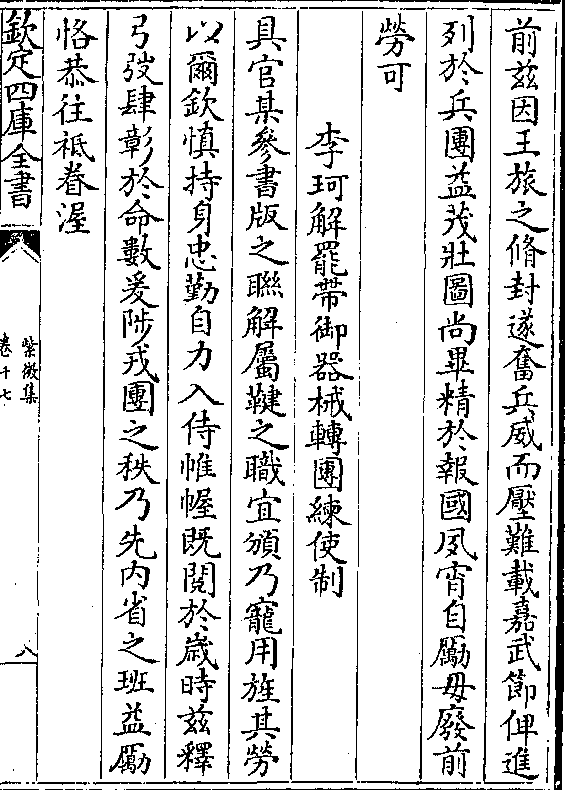 前兹因王旅之脩封遂奮兵威而壓難載嘉武節俾進
列於兵團益茂壯圖尚畢精於報國夙宵自勵毋廢前
勞可
李珂解罷帶御器械轉團練使制
具官某參書版之聯解屬鞬之職宜頒乃寵用旌其勞
以爾欽慎持身忠勤自力入侍帷幄既閱於歲時兹釋
弓弢肆彰於命數爰陟戎團之秩乃先内省之班益勵
恪恭往祗眷渥
欽定四庫全書
紫微集
卷十七
八